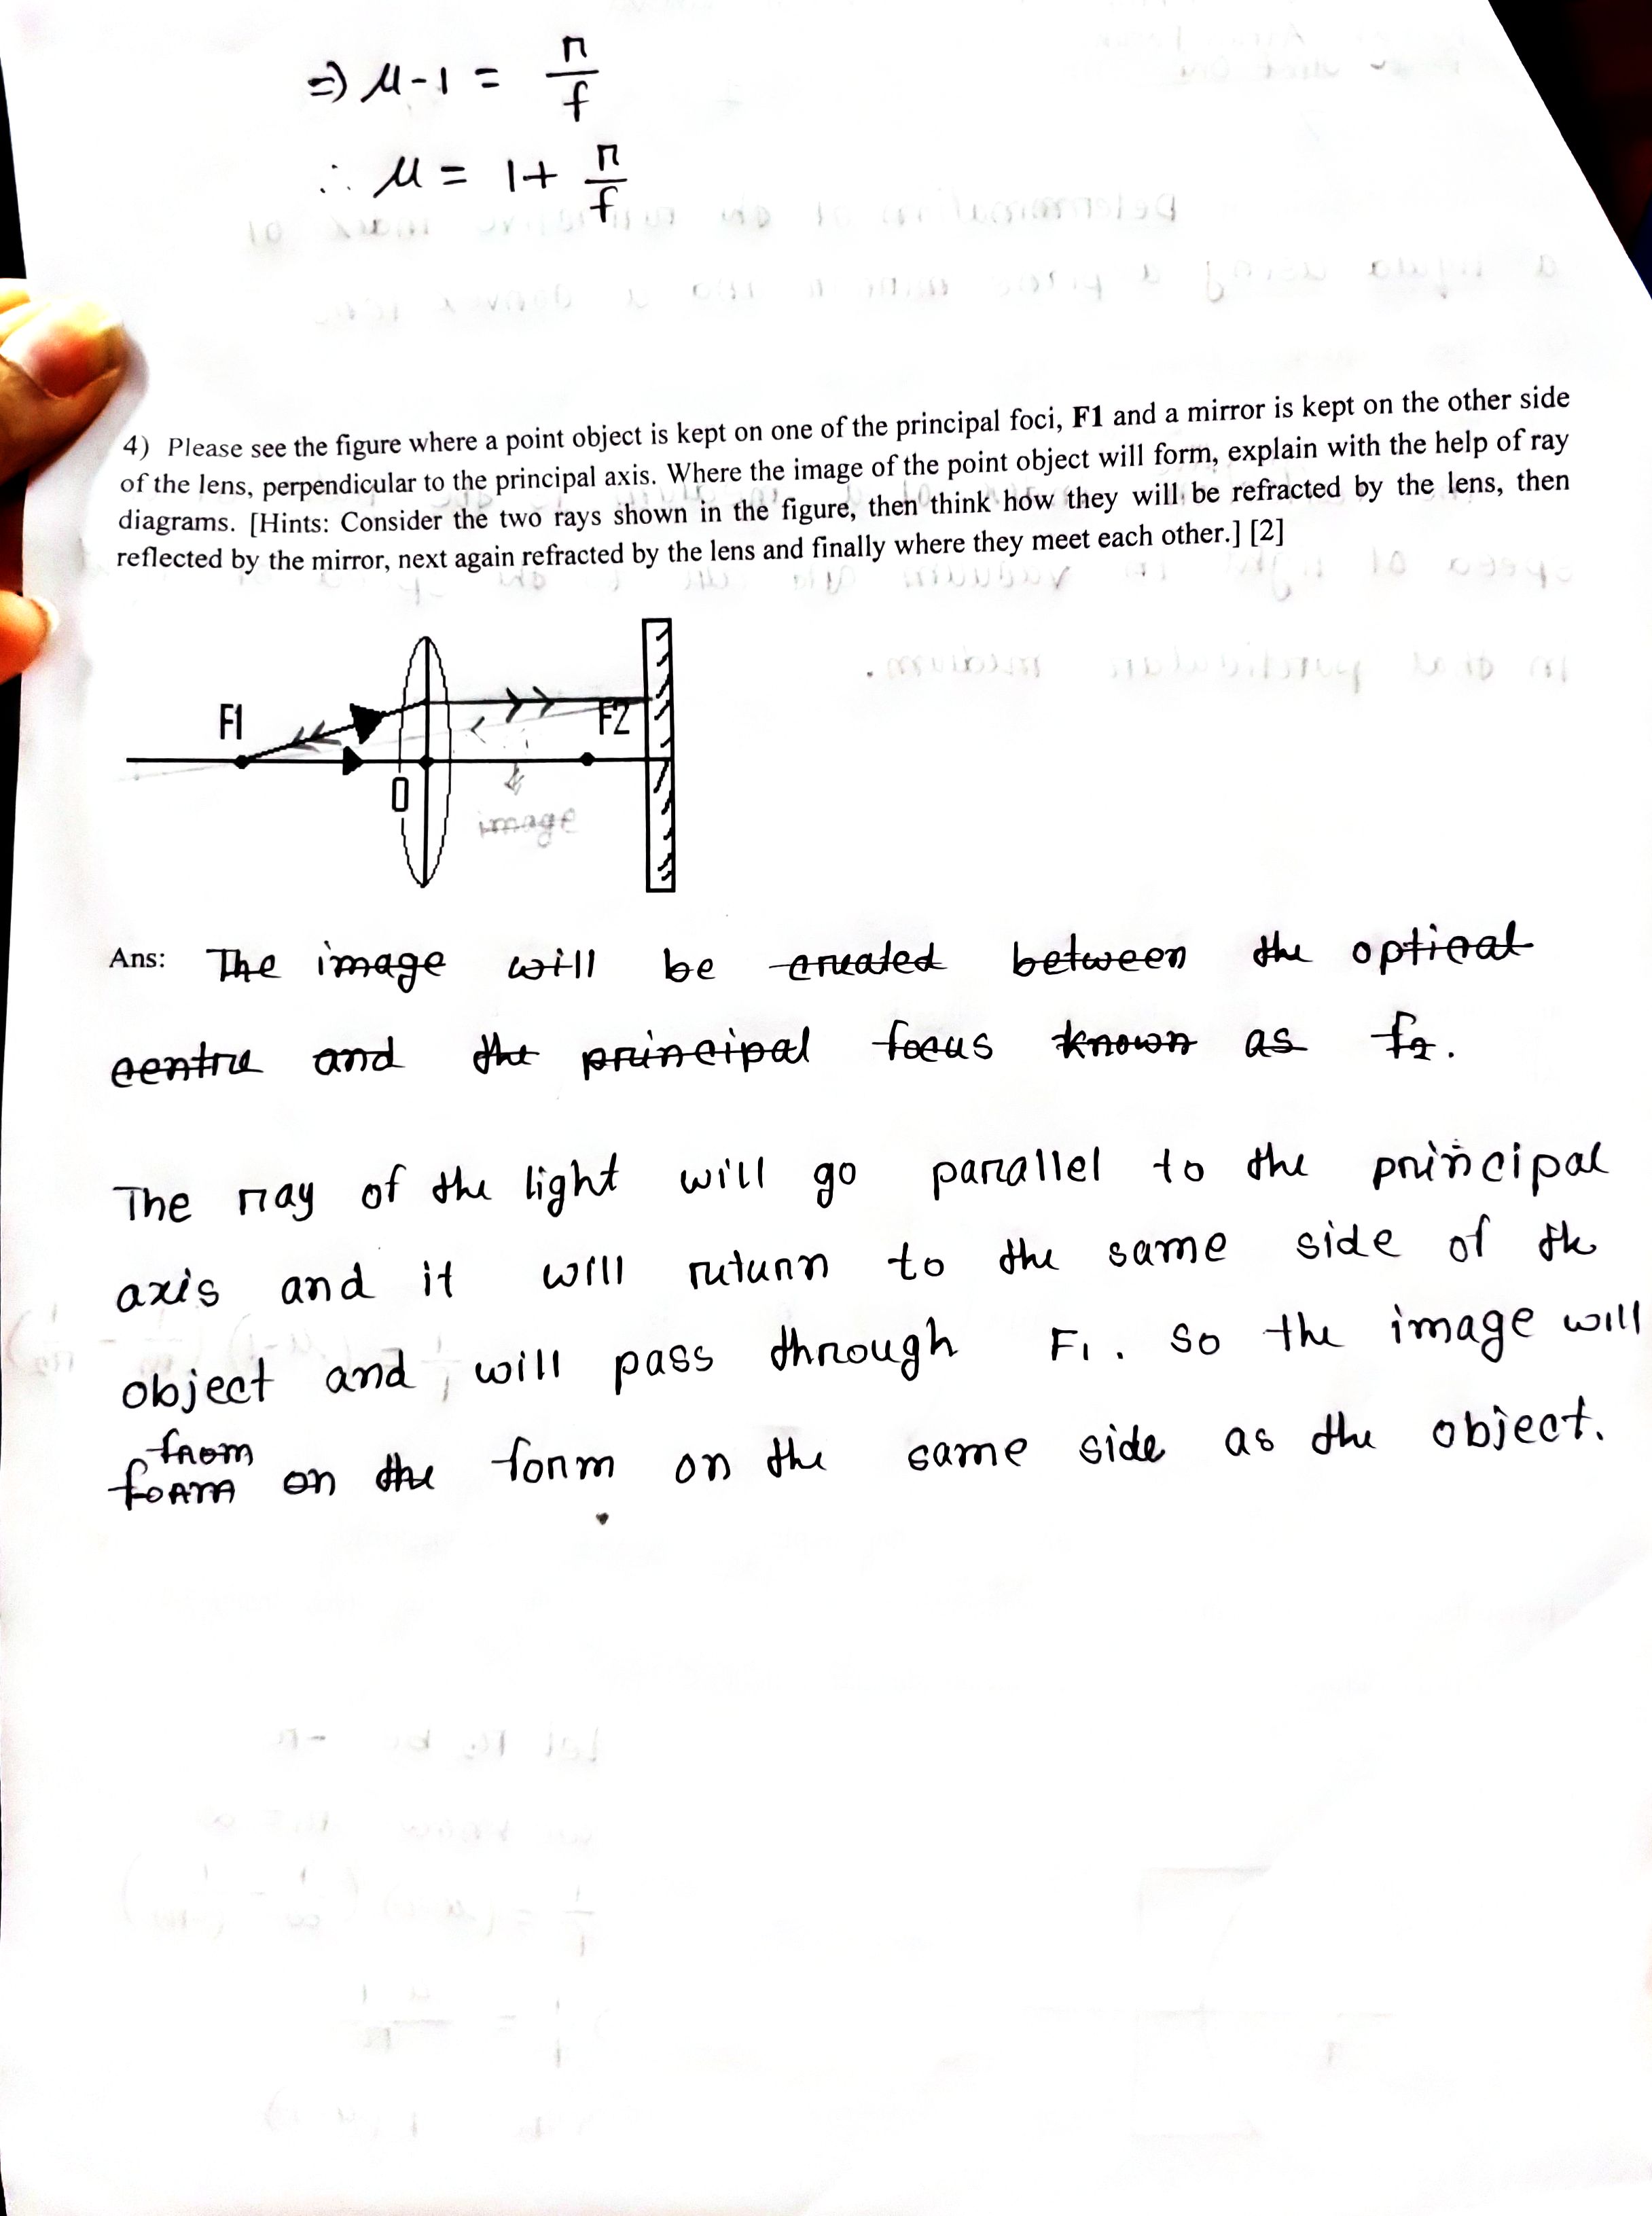 ⇒ μ-1 = r/f
∴ μ = 1+ r/f
4) Please see the figure where a point object is kept on one of the principal foci, F1 and a mirror is kept on the other side
of the lens, perpendicular to the principal axis. Where the image of the point object will form, explain with the help of ray
diagrams. [Hints: Consider the two rays shown in the figure, then think how they will be refracted by the lens, then
reflected by the mirror, next again refracted by the lens and finally where they meet each other.] [2]
F1
F2
O
image
Ans: The image will be created between the optical
centre and the principal focus known as f2.
The ray of the light will go parallel to the principal
axis and it will return to the same side of the
object and will pass through F1. So the image will
from
form on the form on the same side as the object.